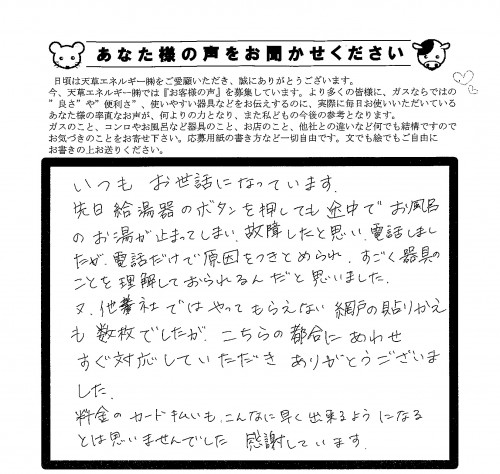 あなた様の声をお聞かせください
日頃は天草エネルギー㈱をご愛顧いただき、誠にありがとうございます。
今、天草エネルギー㈱では『お客様の声』を募集しています。より多くの皆様に、ガスならではの
"良さ"や"便利さ"、使いやすい器具などをお伝えするのに、実際に毎日お使いいただいている
あなた様の率直なお声が、何よりの力となり、また私どもの今後の参考となります。
ガスのこと、コンロやお風呂など器具のこと、お店のこと、他社との違いなど何でも結構ですので
お気づきのことをお寄せ下さい。応募用紙の書き方など一切自由です。文でも絵でもご自由に
お書きの上お送りください。
いつも お世話になっています.
先日給湯器のボタンを押しても途中でお風呂
のお湯が止まってしまい、故障したと思い、電話しまし
たが、電話だけで原因をつきとめられ、すごく器具の
ことを理解しておられるんだと思いました.
又、他社ではやってもらえない網戸の貼りかえ
も数枚でしたが、こちらの都合にあわせ
すぐ対応していただき ありがとうございま
した.
料金のカード払いも、こんなに早く出来るようになる
とは思いませんでした 感謝しています.